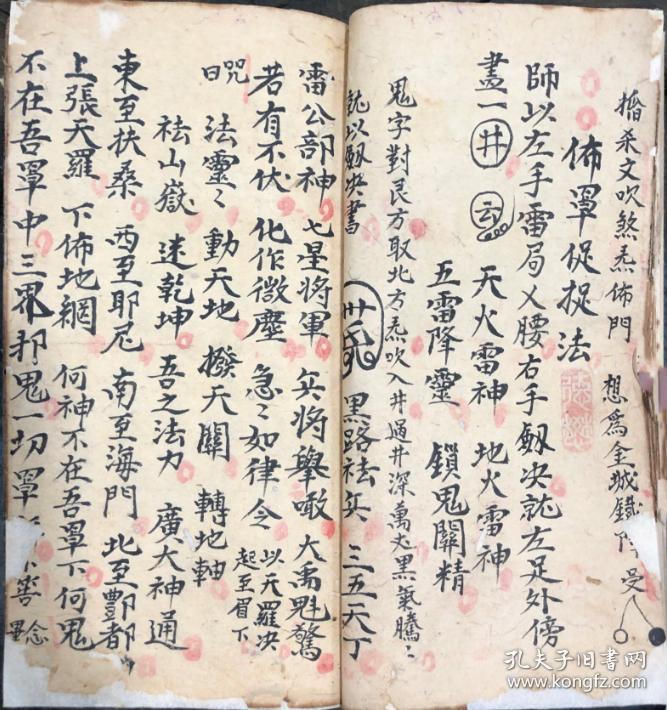 播杀文吹煞炁佈門　想為金城鐵　受
佈罩促捉法
師以左手雷局乂腰右手劔决就左足外傍
畫一井　天火雷神　地火雷神
五雷降靈　鎖鬼關精
鬼字對艮方取北方炁吹入井過井深萬丈黑氣騰〻
就以劔决書　黑路祛兵　三五天丁
雷公部神　七星將軍　兵將舉噉　大禹魁驚
若有不伏　化作微塵　急〻如律令　以天羅决起至眉下
咒曰　法靈〻　動天地　撥天關　轉地軸
祛山嶽　迷乾坤　吾之法力　廣大神通
東至扶桑　西至耶尼　南至海門　北至酆都
上張天羅　下佈地網　何神不在吾罩下何鬼
不在吾罩中三界邪鬼一切罩　念
孔夫子旧书网
www.kongfz.com